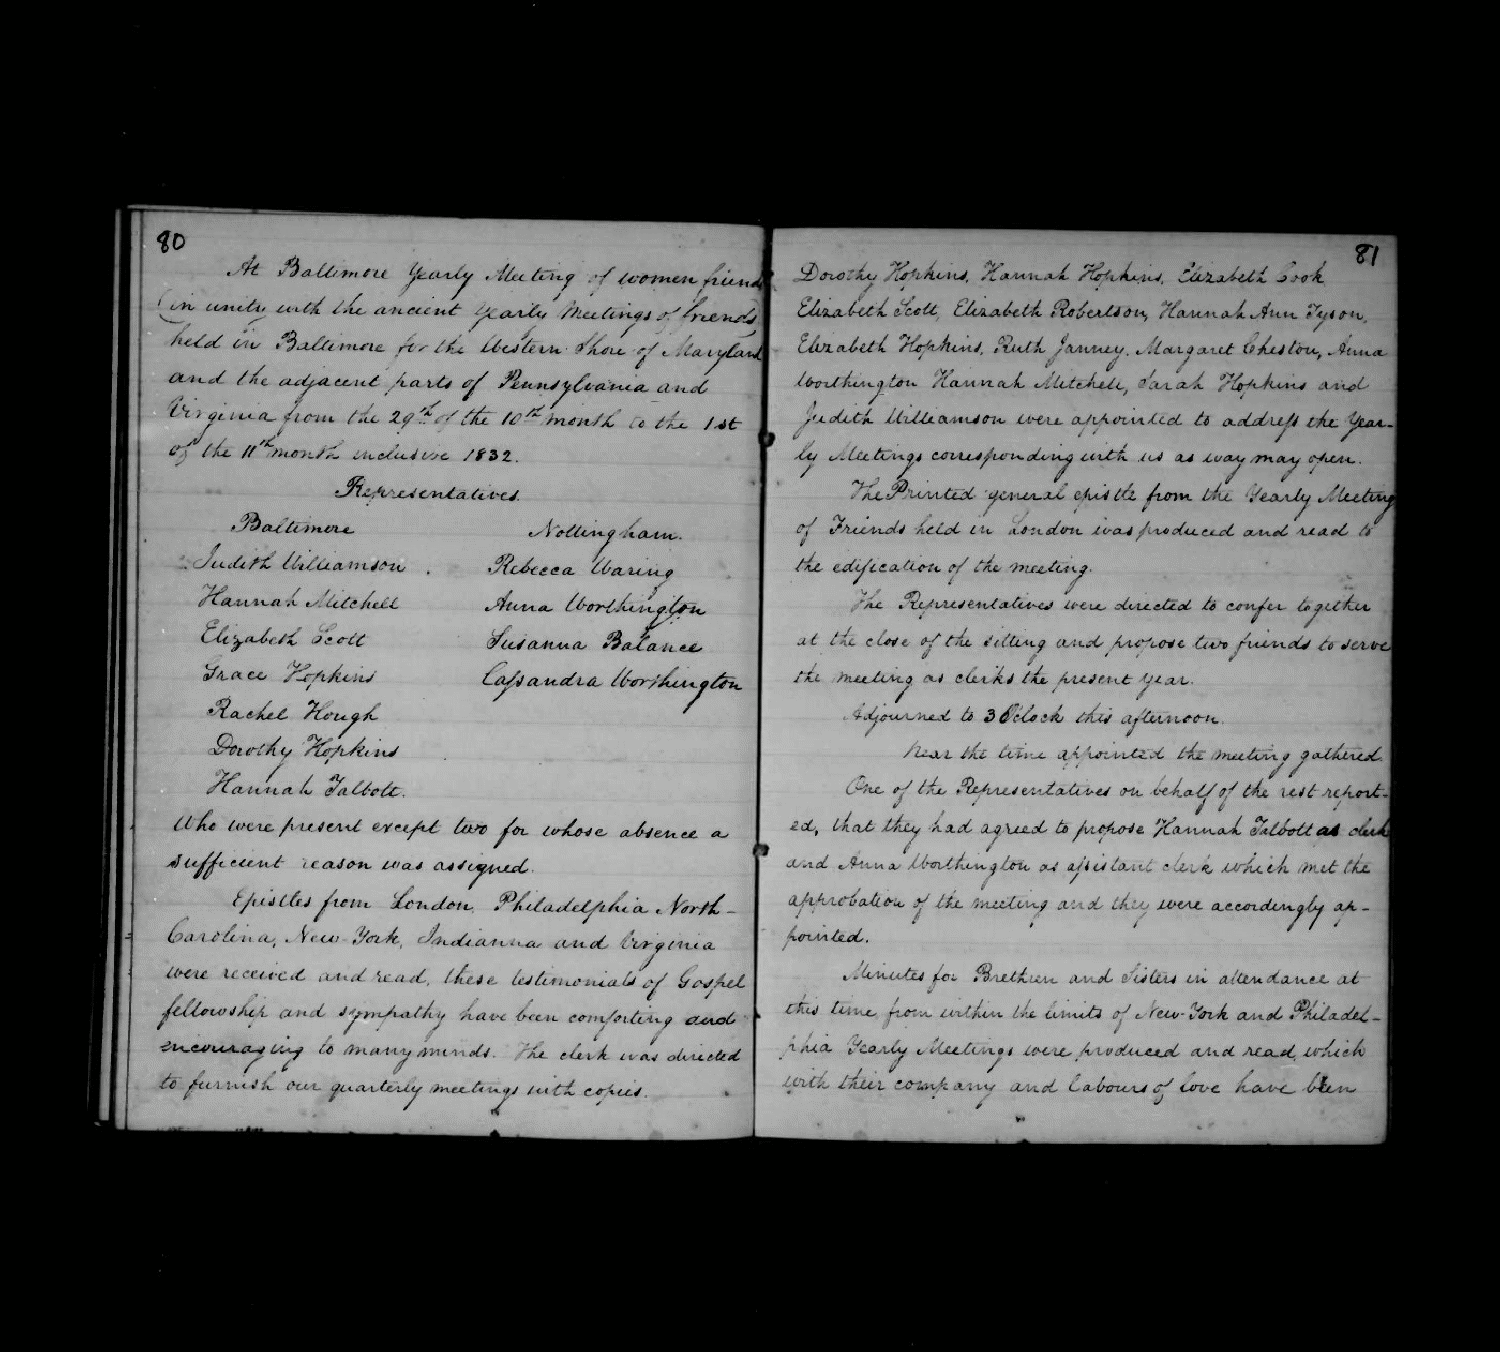 80
At Baltimore Yearly Meeting of women friends
(in unity with the ancient Yearly Meetings of friends)
held in Baltimore for the Western Shore of Maryland
and the adjacent parts of Pennsylvania and
Virginia from the 29th of the 10th month to the 1st
of the 11th month inclusive 1832.
Representatives
Baltimore Nottingham.
Judith Williamson. Rebecca Waring
Hannah Mitchell Anna Worthington
Elizabeth Scott Susanna Balance
Grace Hopkins Cassandra Worthington
Rachel Hough
Dorothy Hopkins
Hannah Talbott.
Who were present except two for whose absence a
sufficient reason was assigned.
Epistles from London, Philadelphia North-
Carolina, New-York, Indianna and Virginia
were received and read, these testimonials of Gospel
fellowship and sympathy have been comforting and
encouraging to many minds. The clerk was directed
to furnish our quarterly meetings with copies.
81
Dorothy Hopkins, Hannah Hopkins, Elizabeth Cook
Elizabeth Scott, Elizabeth Robertson, Hannah Ann Tyson,
Elizabeth Hopkins, Ruth Janney, Margaret Cheston, Anna
Worthington Hannah Mitchell, Sarah Hopkins and
Judith Williamson were appointed to address the Year-
ly Meetings corresponding with us as way may open.
The Printed general epistle from the Yearly Meeting
of Friends held in London was produced and read to
the edification of the meeting.
The Representatives were directed to confer together
at the close of the sitting and propose two friends to serve
the meeting as clerks the present year.
Adjourned to 3 O'clock this afternoon.
Near the time appointed the meeting gathered.
One of the Representatives on behalf of the rest report-
ed, that they had agreed to propose Hannah Talbott as clerk
and Anna Worthington as assistant clerk which met the
approbation of the meeting and they were accordingly ap-
pointed.
Minutes for Brethren and Sisters in attendance at
this time from within the limits of New-York and Philadel-
phia Yearly Meetings were produced and read, which
with their company and labours of love have been